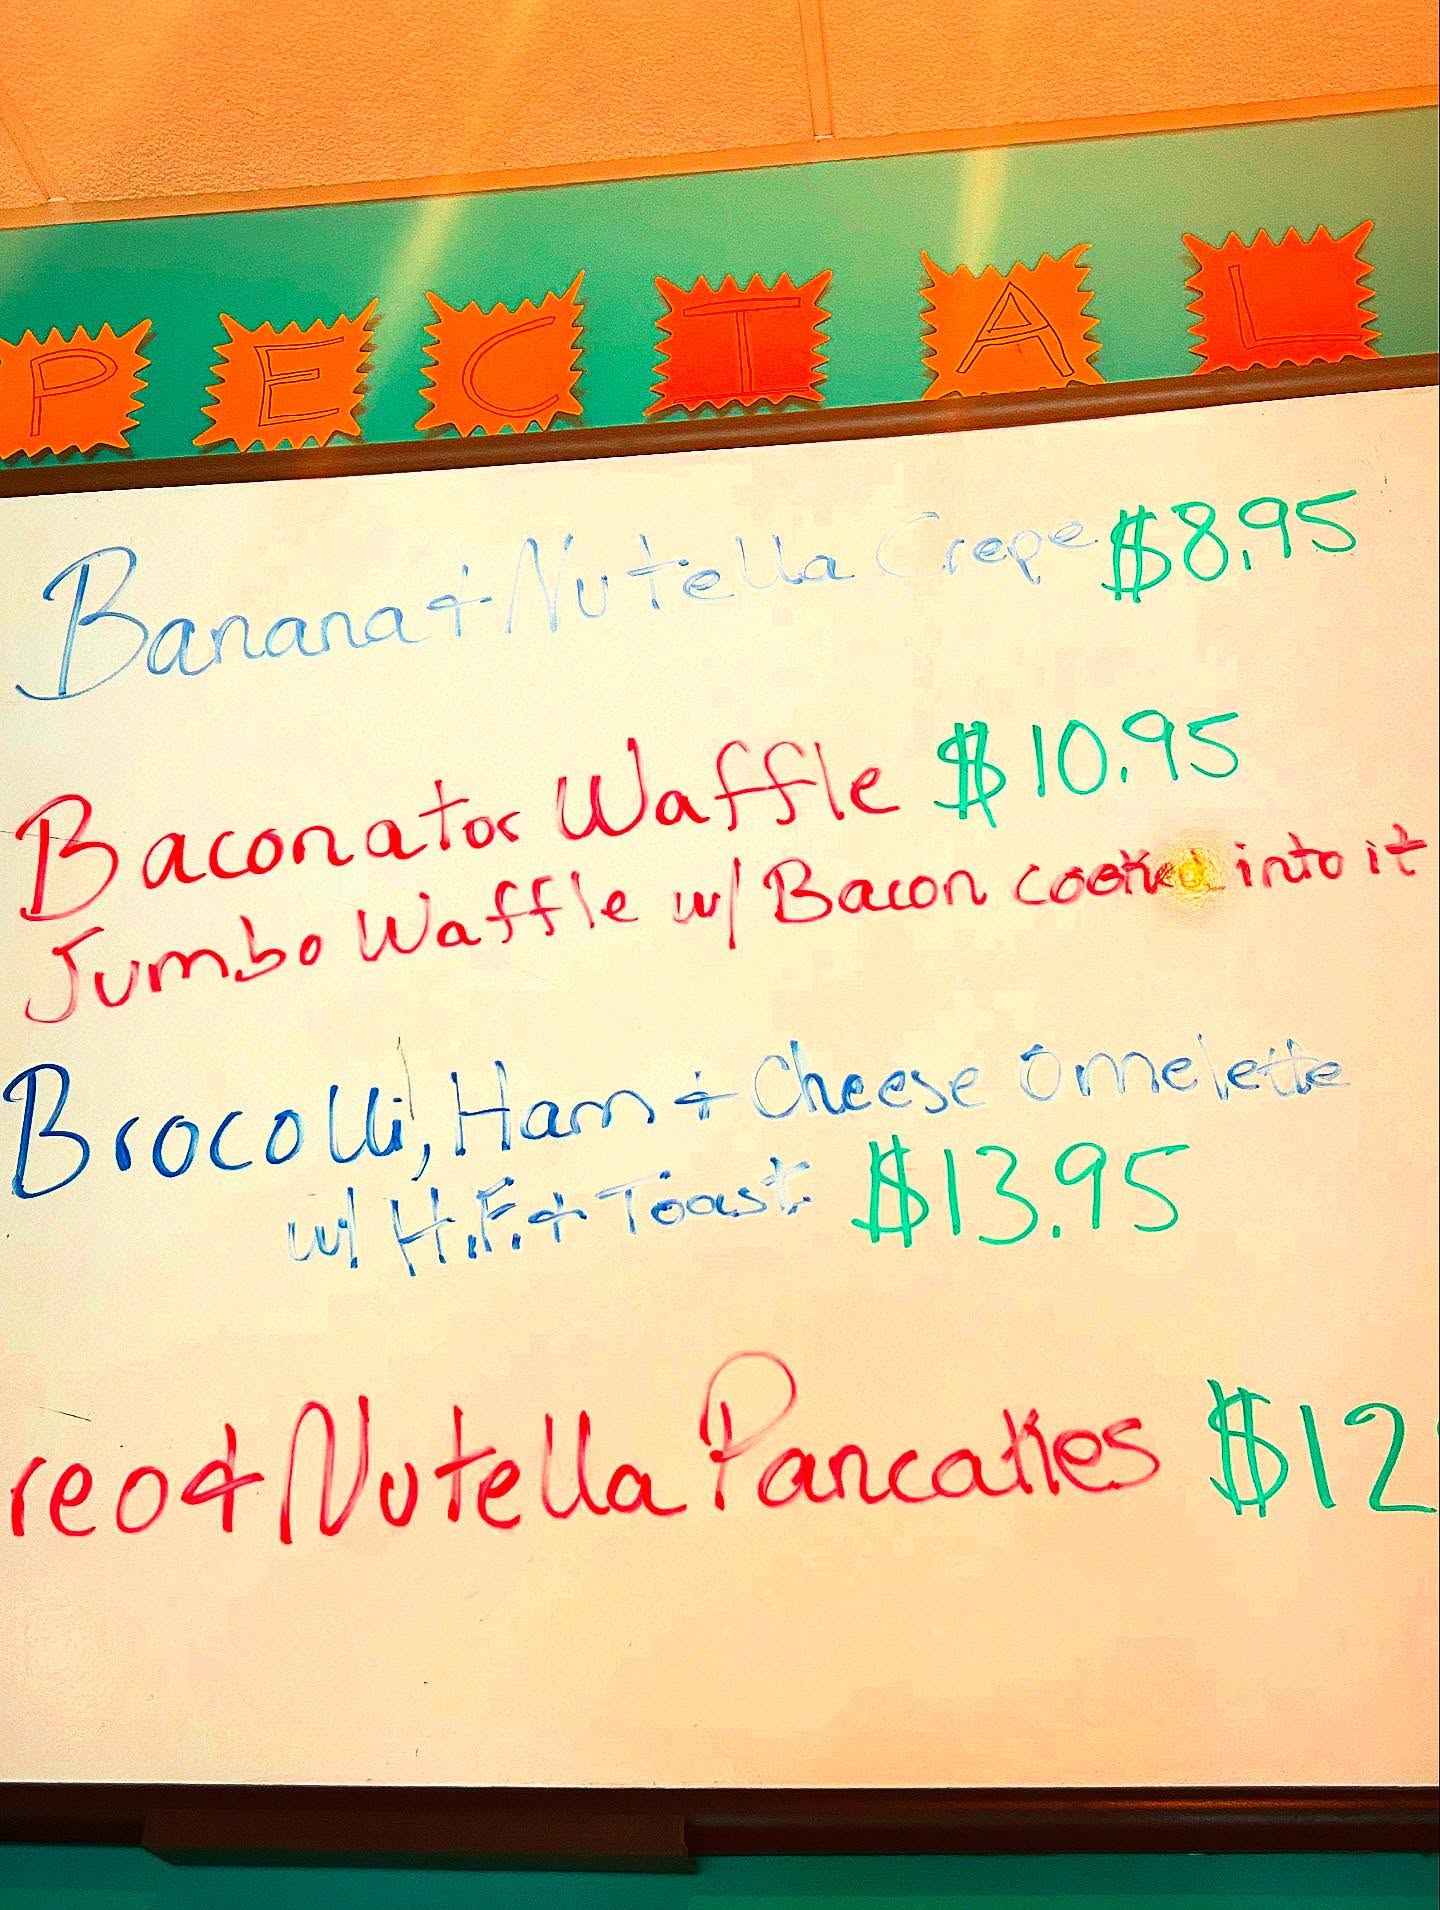 PECIAL
Banana & Nutella Crepe $8.95
Baconator Waffle $10.95
Jumbo Waffle w/ Bacon cooked into it
Brocolli, Ham & Cheese Omelette
w/ H.F. & Toast $13.95
reo & Nutella Pancakes $12